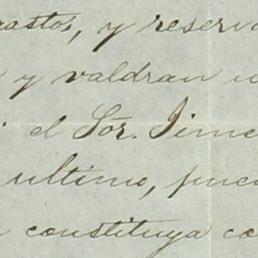 gastos, y reserv
y valdran u
el Sor. Jime
ultimo, pue
constituya co